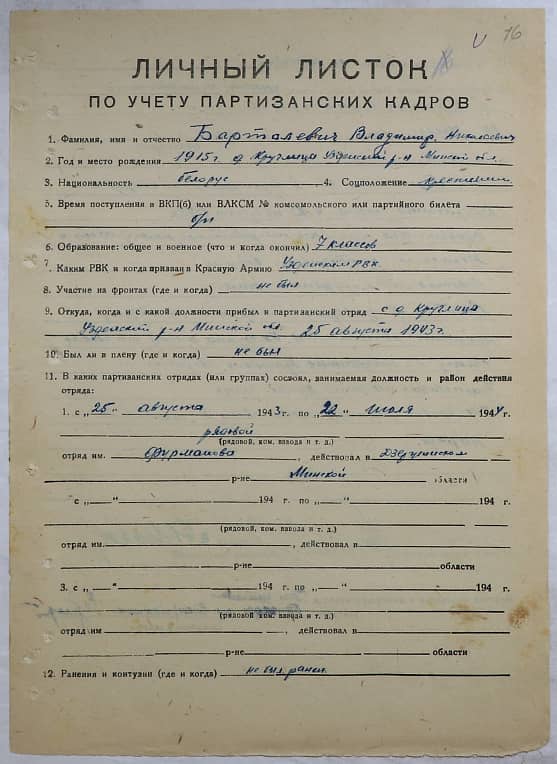 16
ЛИЧНЫЙ ЛИСТОК
ПО УЧЕТУ ПАРТИЗАНСКИХ КАДРОВ
1. Фамилия, имя и отчество Барталевич Владимир Николаевич
2. Год и место рождения 1915 г. д. Круглица Узденский р-н Минской обл.
3. Национальность белорус 4. Соцположение крестьянин
5. Время поступления в ВКП(б) или ВЛКСМ № комсомольского или партийного билета
б/п
6. Образование: общее и военное (что и когда окончил) 7 классов
7. Каким РВК и когда призван в Красную Армию Узденским РВК
8. Участие на фронтах (где и когда) не был
9. Откуда, когда и с какой должности прибыл в партизанский отряд с д. Круглица
Узденский р-н Минской обл. 25 августа 1943 г.
10. Был ли в плену (где и когда) не был
11. В каких партизанских отрядах (или группах) состоял, занимаемая должность и район действия
отряда:
1. с „25“ августа 1943 г. по „22“ июля 1944 г.
рядовой
(рядовой, ком. взвода и т. д.)
отряд им. Фурманова, действовал в Дзержинском
р-не Минской области
с „ “ 194 г. по „ “ 194 г.
(рядовой, ком. взвода и т. д.)
отряд им. , действовал в
р-не области
3. с „ “ 194 г. по „ “ 194 г.
(рядовой, ком. взвода и т. д.)
отряд им , действовал в
р-не области
12. Ранения и контузии (где и когда) не был ранен